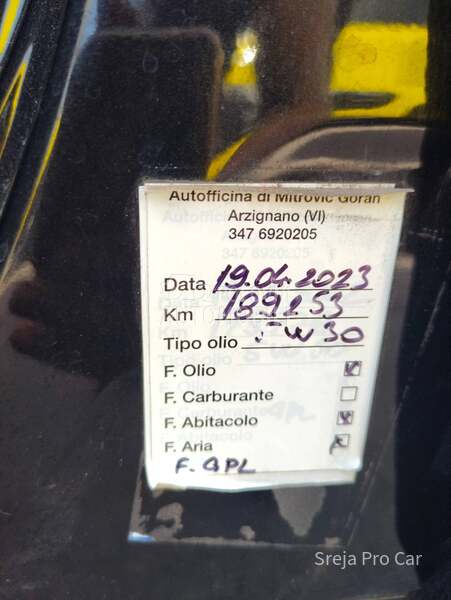 Autofficina di Mitrovic Goran
Arzignano (VI)
347 6920205
Data 19.04.2023
Km 189253
Tipo olio 5W30
F. Olio
F. Carburante
F. Abitacolo
F. Aria
F. GPL
Sreja Pro Car